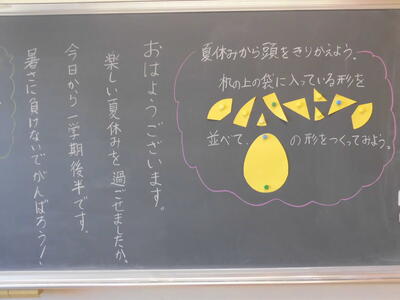 おはようございます。
楽しい夏休みを過ごせましたか。
今日から一学期後半です。
暑さに負けないでがんばろう！
夏休みから頭をきりかえよう。
机の上の袋に入っている形を
並べて、 の形をつくってみよう。